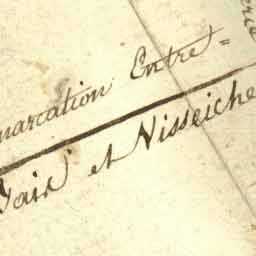 marcation Entre=
et Visseiche